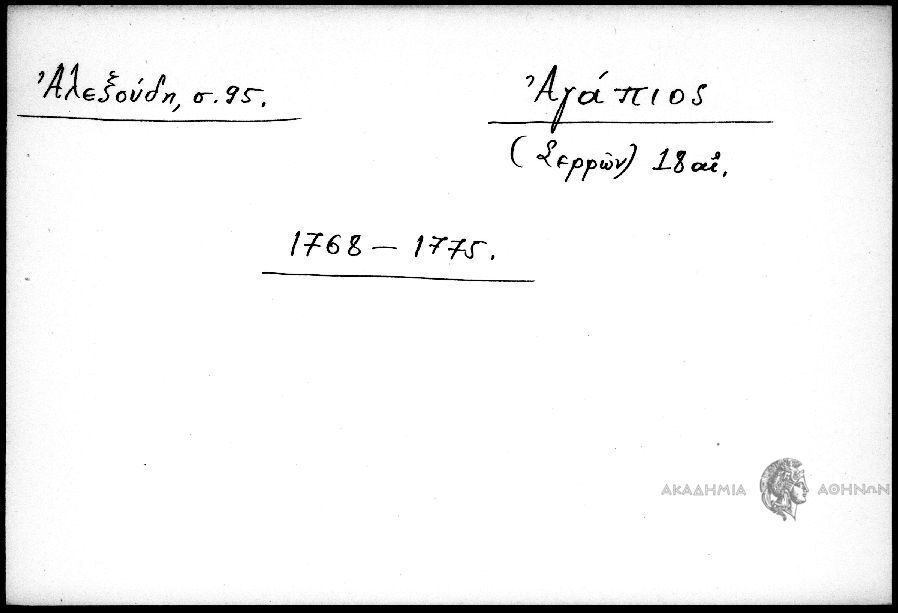 Ἀλεξούδη, σ. 95.
Ἀγάπιος
(Σερρῶν) 18 αἰ.
1768 – 1775.
ΑΚΑΔΗΜΙΑ ΑΘΗΝΩΝ